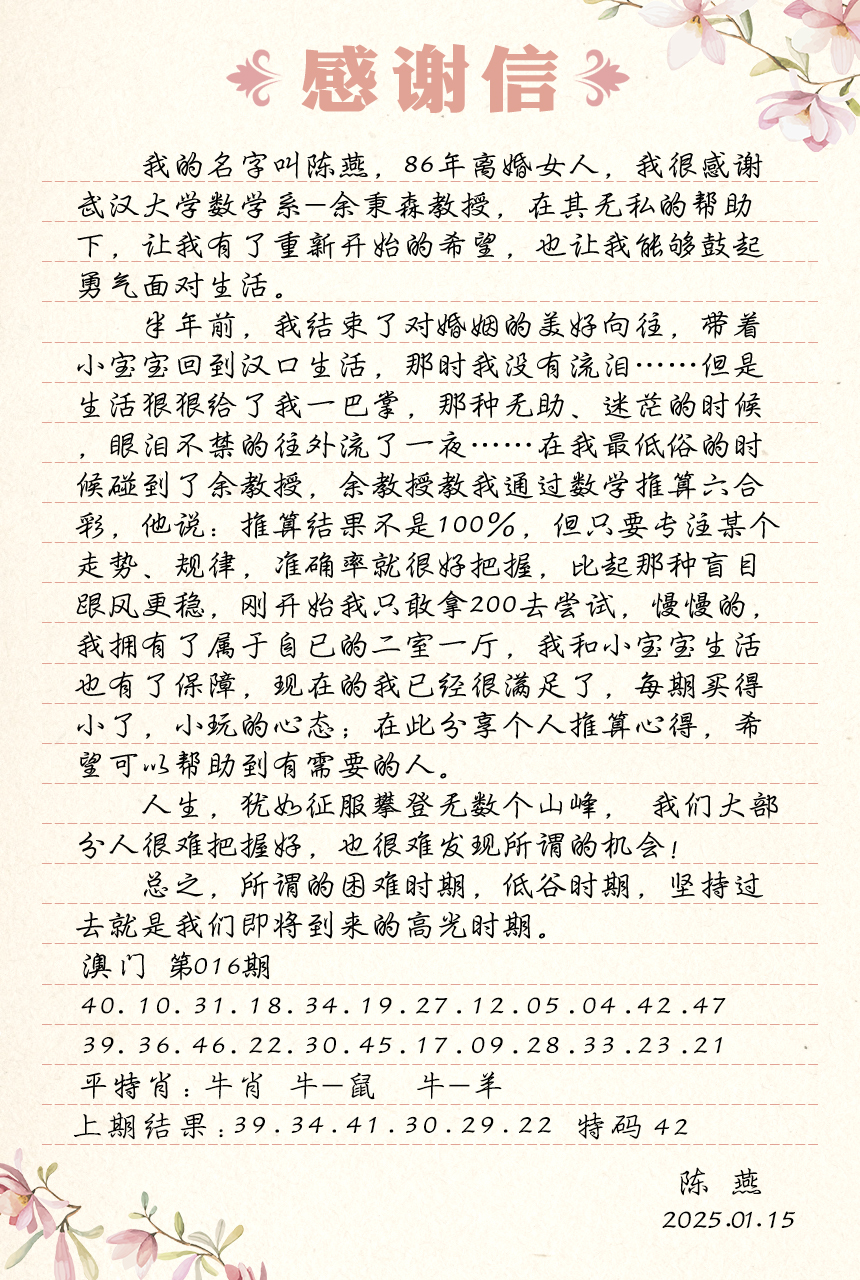 感谢信
我的名字叫陈燕，86年离婚女人，我很感谢
武汉大学数学系—余秉森教授，在其无私的帮助
下，让我有了重新开始的希望，也让我能够鼓起
勇气面对生活。
半年前，我结束了对婚姻的美好向往，带着
小宝宝回到汉口生活，那时我没有流泪……但是
生活狠狠给了我一巴掌，那种无助、迷茫的时候
，眼泪不禁的往外流了一夜……在我最低俗的时
候碰到了余教授，余教授教我通过数学推算六合
彩，他说：推算结果不是100%，但只要专注某个
走势、规律，准确率就很好把握，比起那种盲目
跟风更稳，刚开始我只敢拿200去尝试，慢慢的，
我拥有了属于自已的二室一厅，我和小宝宝生活
也有了保障，现在的我已经很满足了，每期买得
小了，小玩的心态；在此分享个人推算心得，希
望可以帮助到有需要的人。
人生，犹如征服攀登无数个山峰， 我们大部
分人很难把握好，也很难发现所谓的机会！
总之，所谓的困难时期，低谷时期，坚持过
去就是我们即将到来的高光时期。
澳门 第016期
40.10.31.18.34.19.27.12.05.04.42.47
39.36.46.22.30.45.17.09.28.33.23.21
平特肖：牛肖 牛—鼠 牛—羊
上期结果：39.34.41.30.29.22 特码 42
陈 燕
2025.01.15